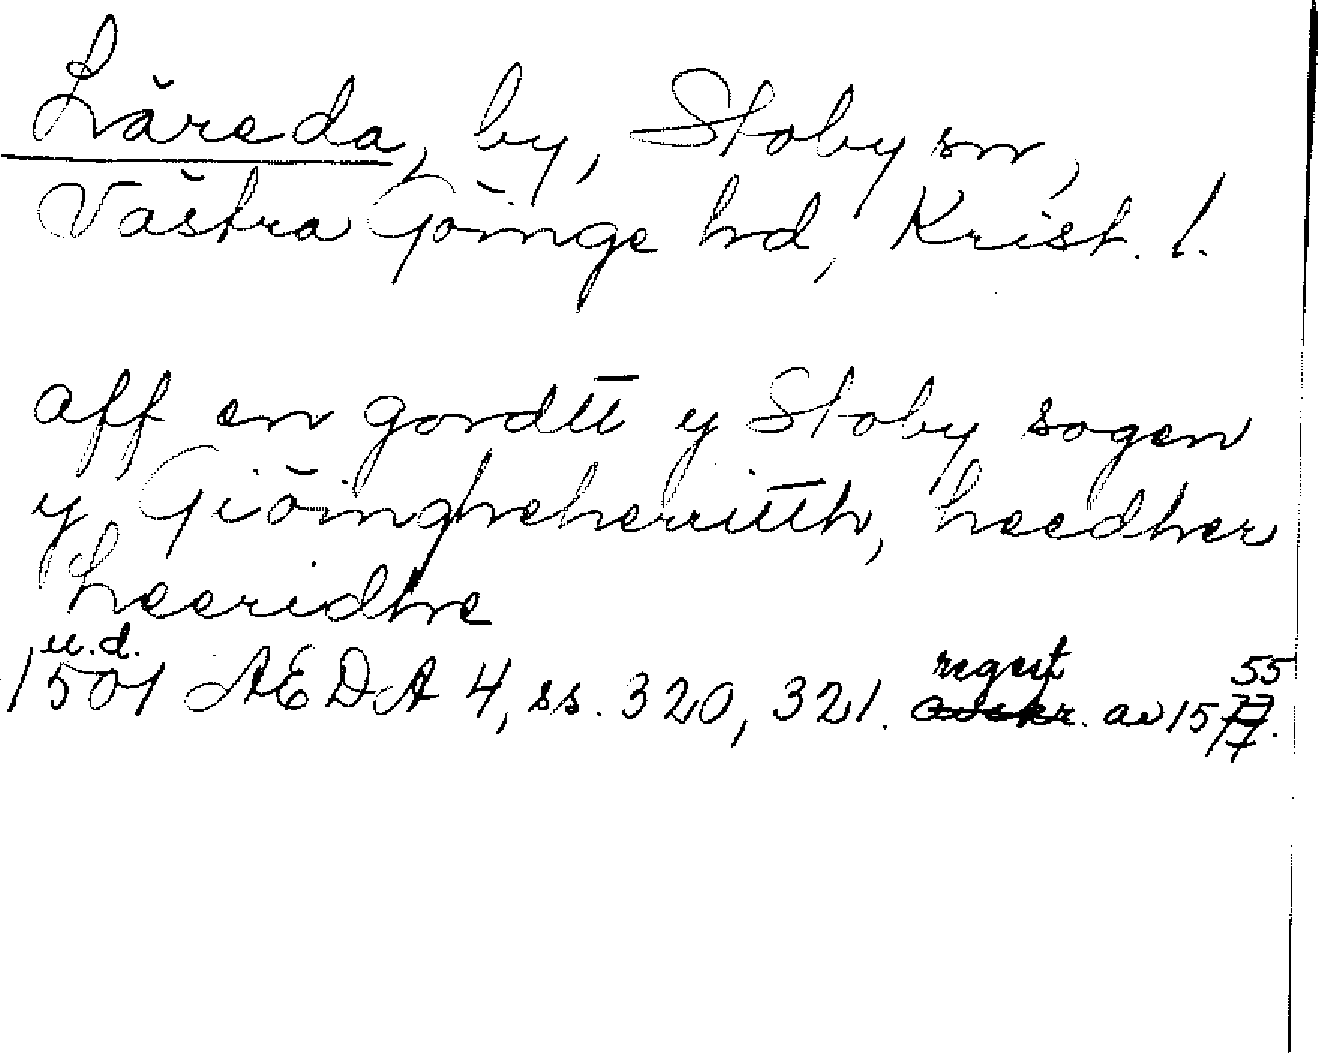 Läreda, by, Stoby sn,
Västra Göinge hd, Krist. l.
aff en gordtt y Stoby sogen
y Giöingheherritth, heedher
Leeridhe
u.d.
1501 AEDA 4, ss. 320, 321. regest av 1555.